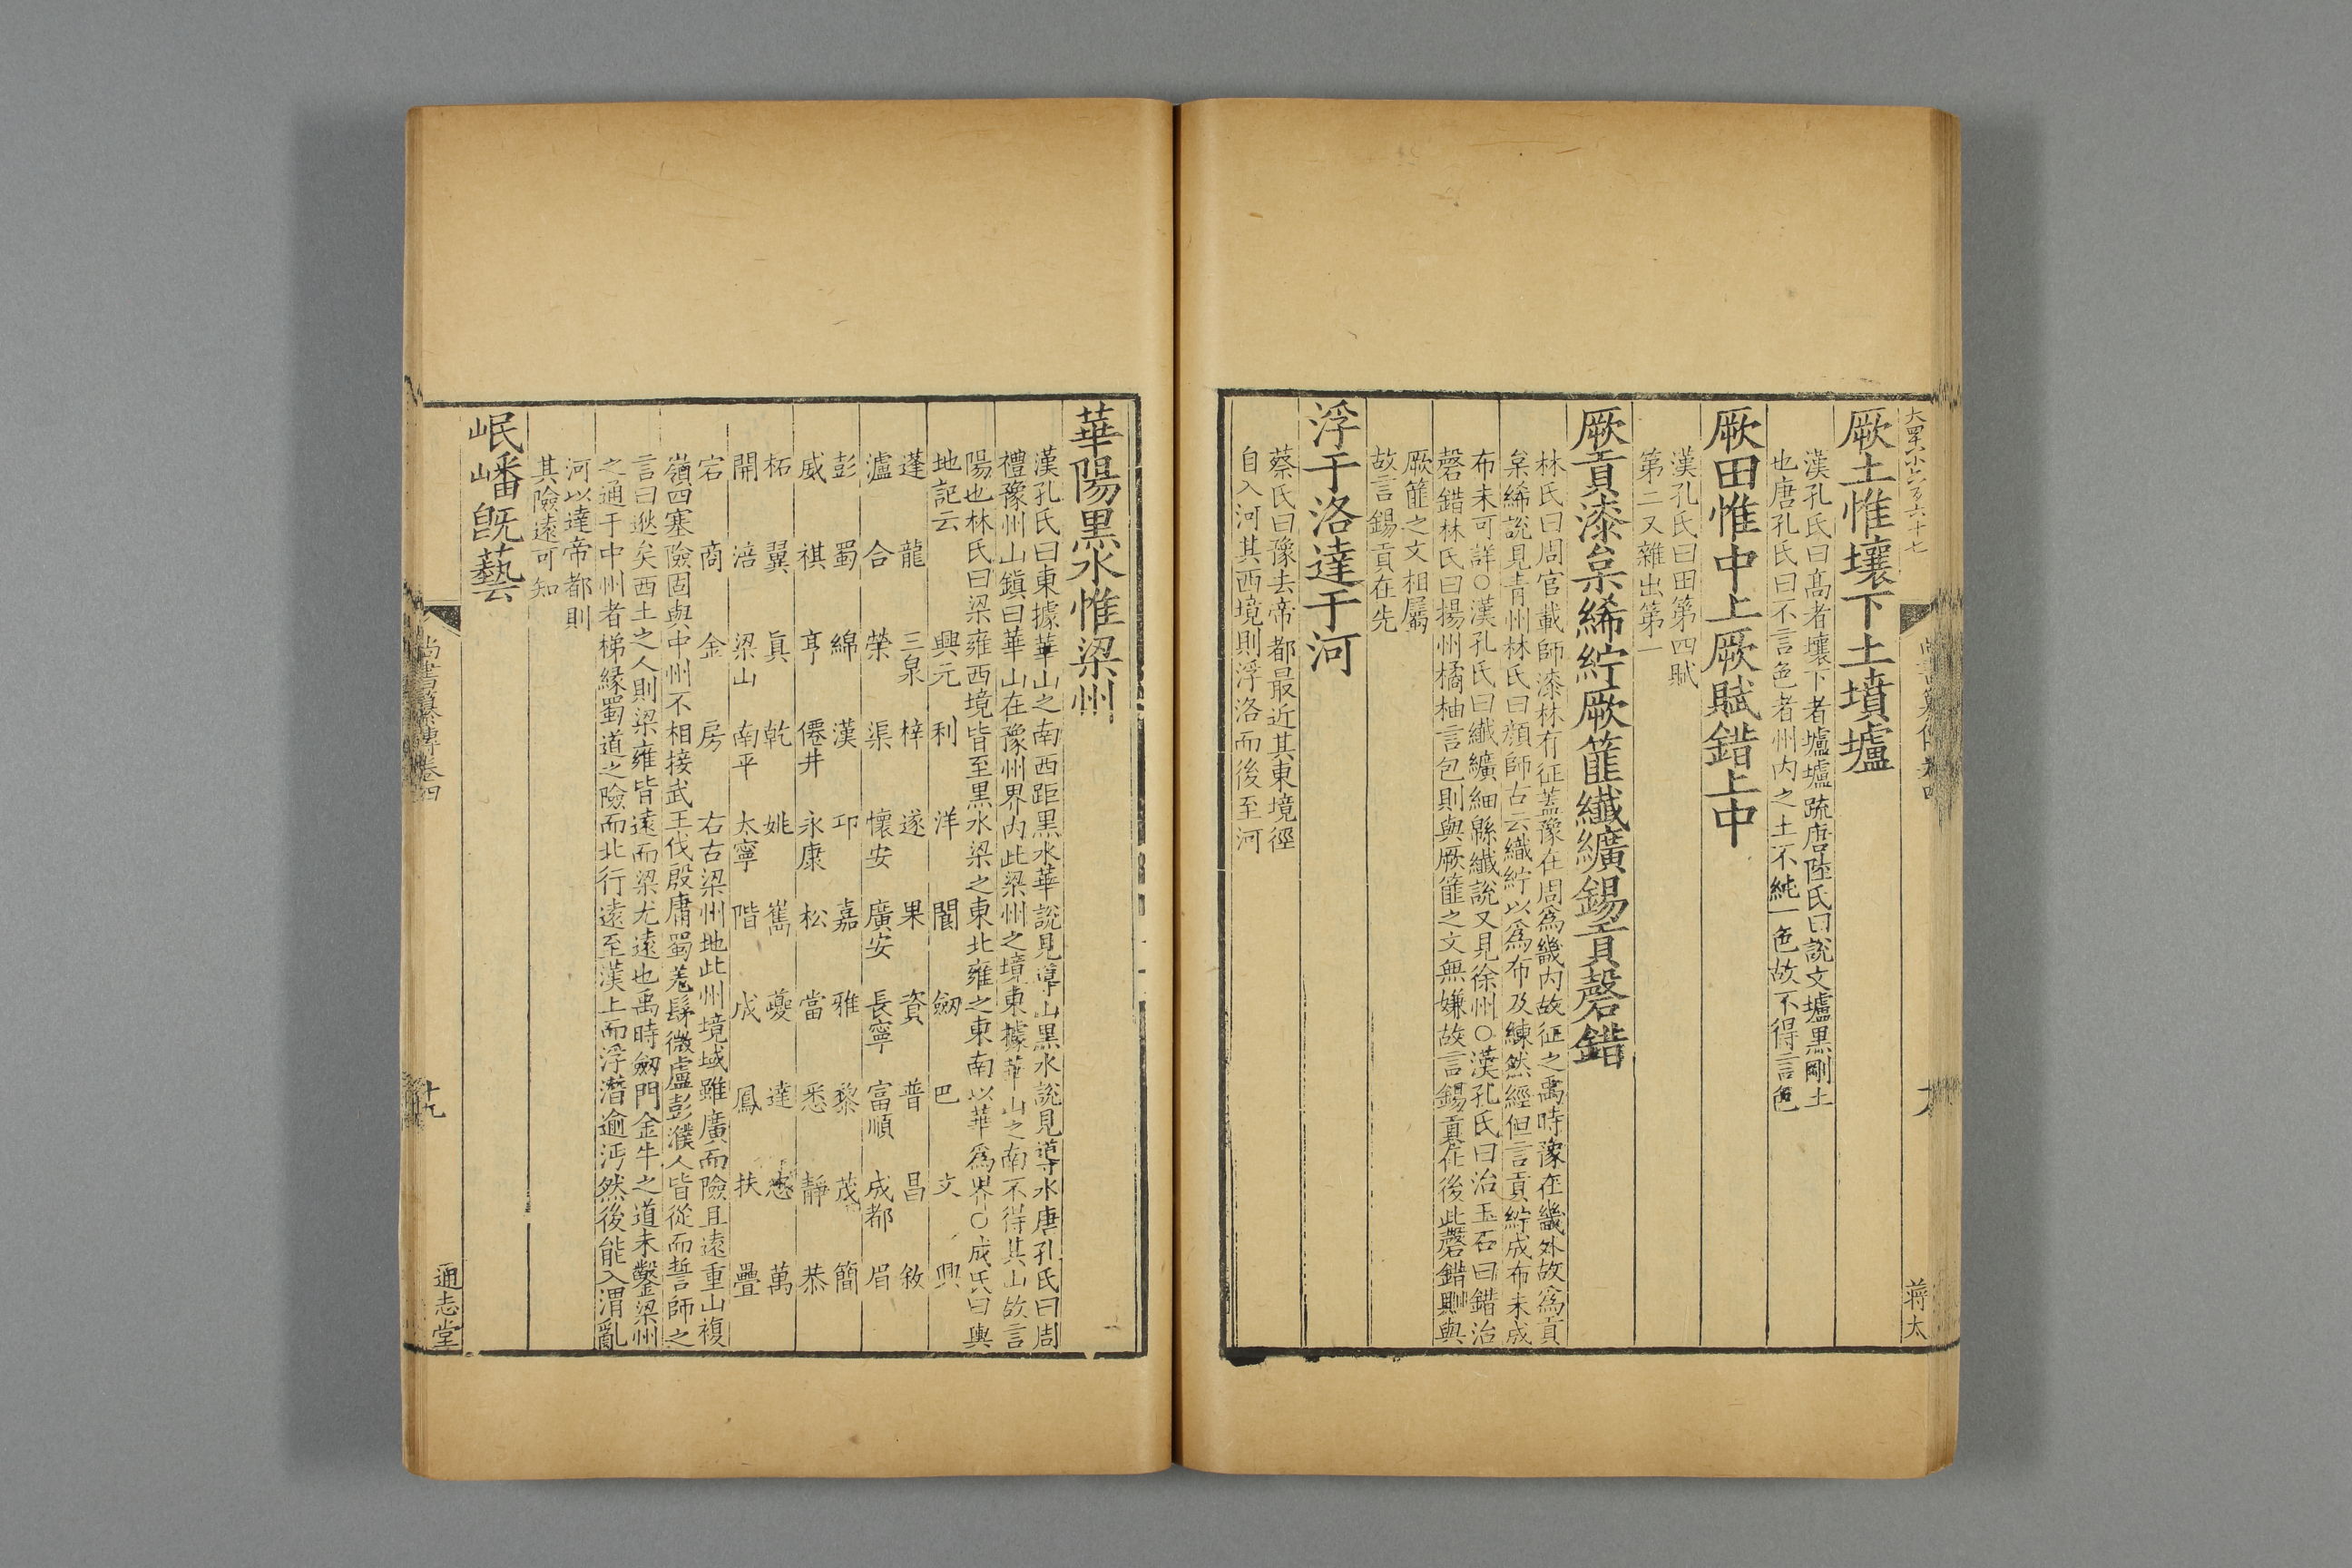 厥土惟壤下土墳壚
漢孔氏曰髙者壤下者壚壚疏唐陸氏曰說文壚黒剛土
也唐孔氏曰不言色者州内之土不純一色故不得言色
厥田惟中上厥賦錯上中
漢孔氏曰田第四賦
第二又雜出第一
厥貢漆枲絺紵厥篚纖纊錫貢磬錯
林氏曰周官載師漆林有征蓋豫在周爲畿内故征之禹時豫在畿外故爲貢
枲絺說見青州林氏曰顔師古云織紵以爲布及練然經但言貢紵成布未成
布未可詳○漢孔氏曰纖纊細緜纖說又見徐州○漢孔氏曰治玉石曰錯治
磬錯林氏曰揚州橘柚言包則與厥篚之文無嫌故言錫貢在後此磬錯則與
厥篚之文相屬
故言錫貢在先
浮于洛達于河
蔡氏曰豫去帝都最近其東境徑
自入河其西境則浮洛而後至河
蔣太
華陽黒水惟梁州
漢孔氏曰東據華山之南西距黒水華說見導山黒水說見導水唐孔氏曰周
禮豫州山鎮曰華山在豫州界内此梁州之境東據華山之南不得其山故言
陽也林氏曰梁雍西境皆至黒水梁之東北雍之東南以華爲界○成氏曰輿
地記云 興元 利 洋 閬 劔 巴 文 興
蓬 龍 三泉 梓 遂 果 資 普 昌 敘
瀘 合 榮 渠 懷安 廣安 長寧 富順 成都 眉
彭 蜀 綿 漢 邛 嘉 雅 黎 茂 簡
威 祺 亨 僊井 永康 松 當 悉 靜 恭
柘 翼 眞 乾 姚 嶲 夔 達 忠 萬
開 涪 梁山 南平 太寧 階 成 鳳 扶 疊
宕 商 金 房 右古梁州地此州境域雖廣而險且遠重山複
嶺四塞險固與中州不相接武王伐殷庸蜀羌髳微盧彭濮人皆從而誓師之
言曰逖矣西土之人則梁雍皆遠而梁尤遠也禹時劔門金牛之道未鑿梁州
之通于中州者梯緣蜀道之險而北行遠至漢上而浮潛逾沔然後能入渭亂
河以達帝都則
其險遠可知
岷嶓旣藝
尚書纂傳卷四
十九
通志堂